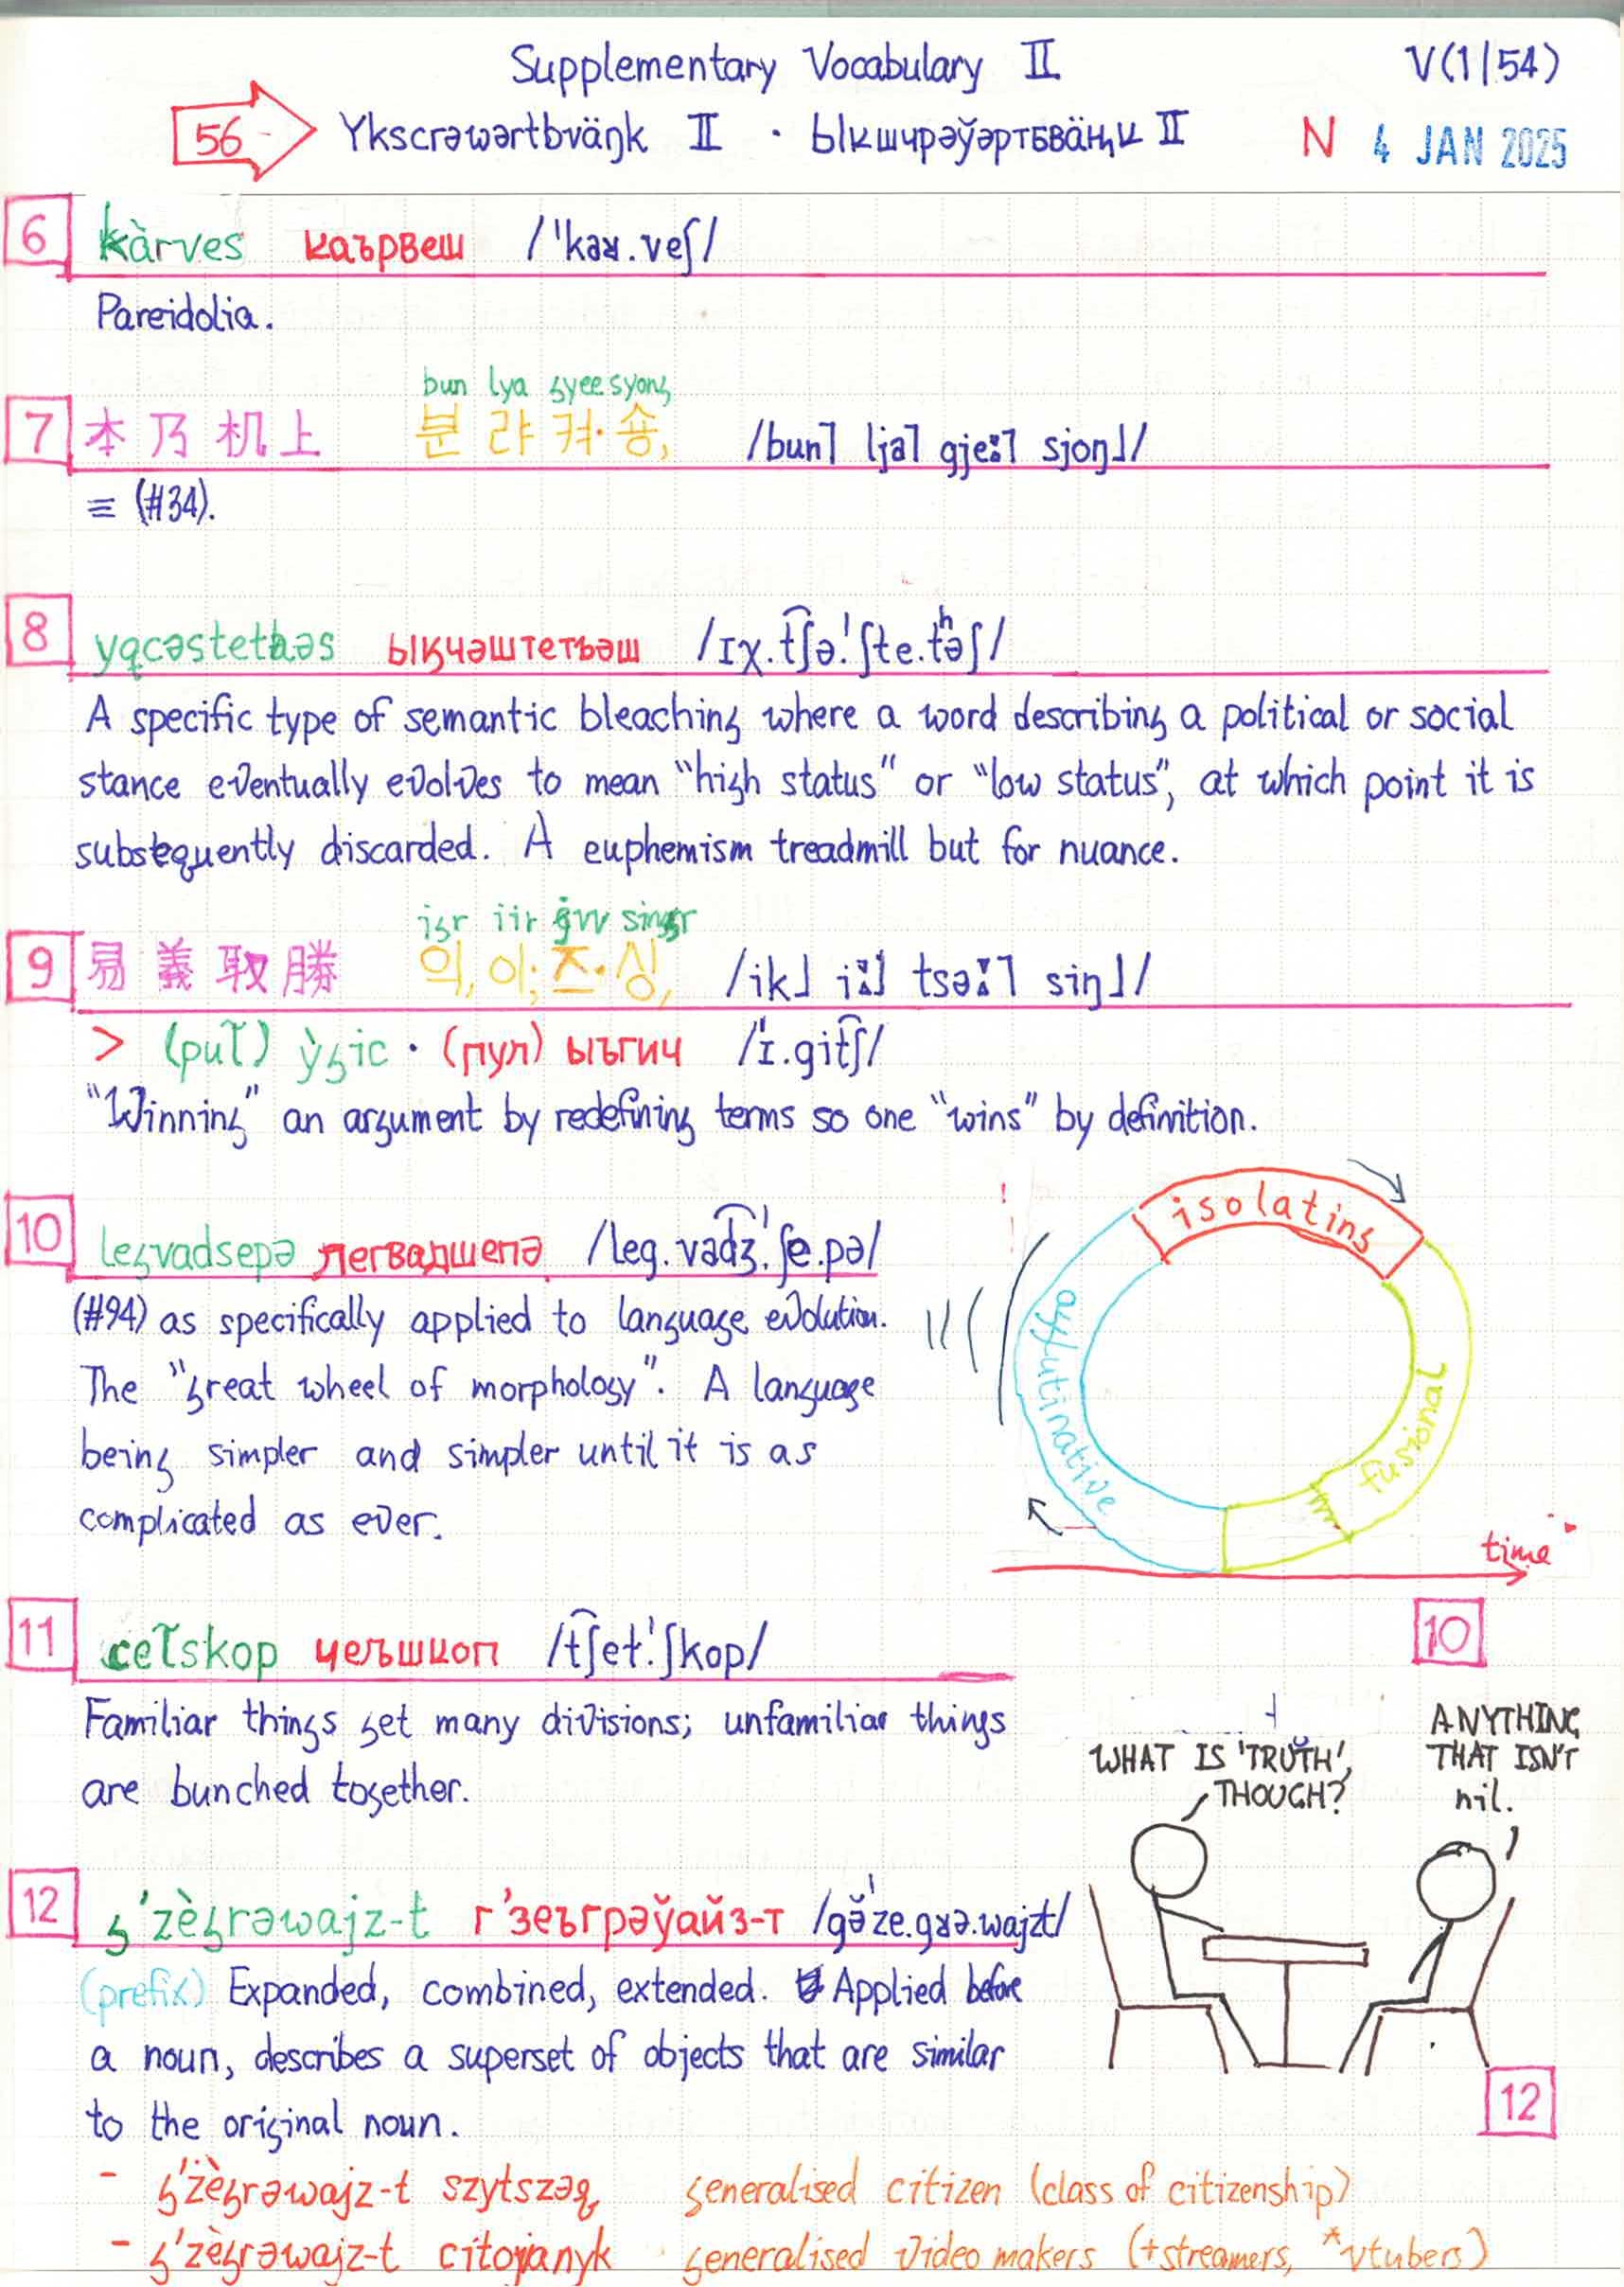 Supplementary Vocabulary II
V(1|54)
56
Ykscrəwərtbväŋk II · Ыкшчрәўәртбвӓңк II
N 4 JAN 2025
6 kàrves каървеш /ˈkaʁ.veʃ/
Pareidolia.
bun lya gyee syong
7 本乃机上 분 랴 켜· 숑, /bun˥ lja˥ gjeː˥ sjoŋ˩/
≡ (#34).
8 yqcəstethəs ықчәштетьәш /ɪχ.t͡ʃə.ˈʃte.tʰəʃ/
A specific type of semantic bleaching where a word describing a political or social
stance eventually evolves to mean "high status" or "low status", at which point it is
subsequently discarded. A euphemism treadmill but for nuance.
9 易義取勝 익, 이; 즈· 싱, /ik˩ iː˩ tsəː˥ siŋ˩/
> (pul̃) ỳgic · (пул) ыъгич /ˈɪ.git͡ʃ/
"Winning" an argument by redefining terms so one "wins" by definition.
10 legvadsepə легвадшепә /leg.vad͡ʒ.ˈʃe.pə/
(#94) as specifically applied to language evolution.
The "great wheel of morphology". A language
being simpler and simpler until it is as
complicated as ever.
isolating
agglutinative
fusional
time
10
11 cel̃skop чельшкоп /t͡ʃeɫ.ˈʃkop/
Familiar things get many divisions; unfamiliar things
are bunched together.
WHAT IS 'TRUTH',
THOUGH?
ANYTHING
THAT ISN'T
nil.
12 g'zègrəwajz-t г'зеъгрәўайз-т /gə̆ˈze.gʁə.wajzt/
(prefix) Expanded, combined, extended. Applied before
a noun, describes a superset of objects that are similar
to the original noun.
12
- g'zègrəwajz-t szytszəq generalised citizen (class of citizenship)
- g'zègrəwajz-t citojanyk generalised video makers (+streamers, *vtubers)